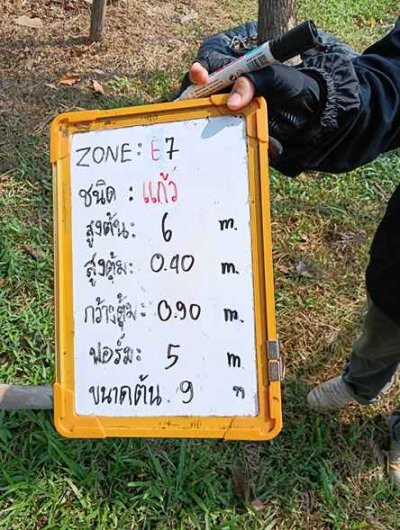 ZONE: E7
ชนิด : แก้ว
สูงต้น: 6 m.
สูงตุ้ม: 0.40 m.
กว้างตุ้ม: 0.90 m.
ฟอร์ม: 5 m
ขนาดต้น. 9 "